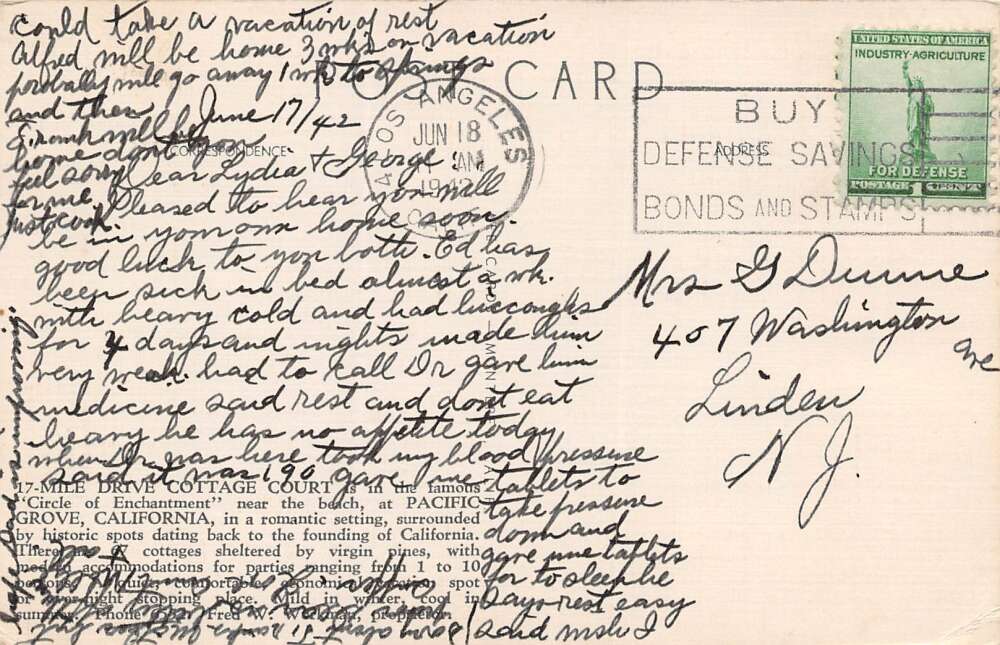 could take a vacation of rest
Alfred will be home 3 wks on vacation
probally will go away 1 wk to springs
and then
Frank will be
home dont
feel sorry
for me.
Just cook.
POST CARD
CORRESPONDENCE
ADDRESS
June 17/42
Dear Lydia + George:
Pleased to hear you will
be in your own home soon.
good luck to you both. Ed has
been sick in bed almost a wk.
with heavy cold and had hiccoughs
for 4 days and nights made him
very weak. had to call Dr gave him
medicine said rest and dont eat
heavy he has no appetite today
when Dr. was here took my blood pressure
said it was 190 gave me tablets to
take pressure
down and
gave me tablets
for to sleep he
says rest easy
said wish I
hope Dad is improving
17-MILE DRIVE COTTAGE COURT is in the famous
"Circle of Enchantment" near the beach, at PACIFIC
GROVE, CALIFORNIA, in a romantic setting, surrounded
by historic spots dating back to the founding of California.
There are 67 cottages sheltered by virgin pines, with
modern accommodations for parties ranging from 1 to 10
persons. comfortable, economical vacation spot
or over-night stopping place. Mild in winter, cool in
summer. Phone Fred W. Workman, proprietor.
LOS ANGELES
JUN 18
AM
1942
BUY
DEFENSE SAVINGS
BONDS AND STAMPS
UNITED STATES OF AMERICA
INDUSTRY-AGRICULTURE
FOR DEFENSE
POSTAGE 1 CENT
Mrs G Dunne
407 Washington
ave
Linden
N J.